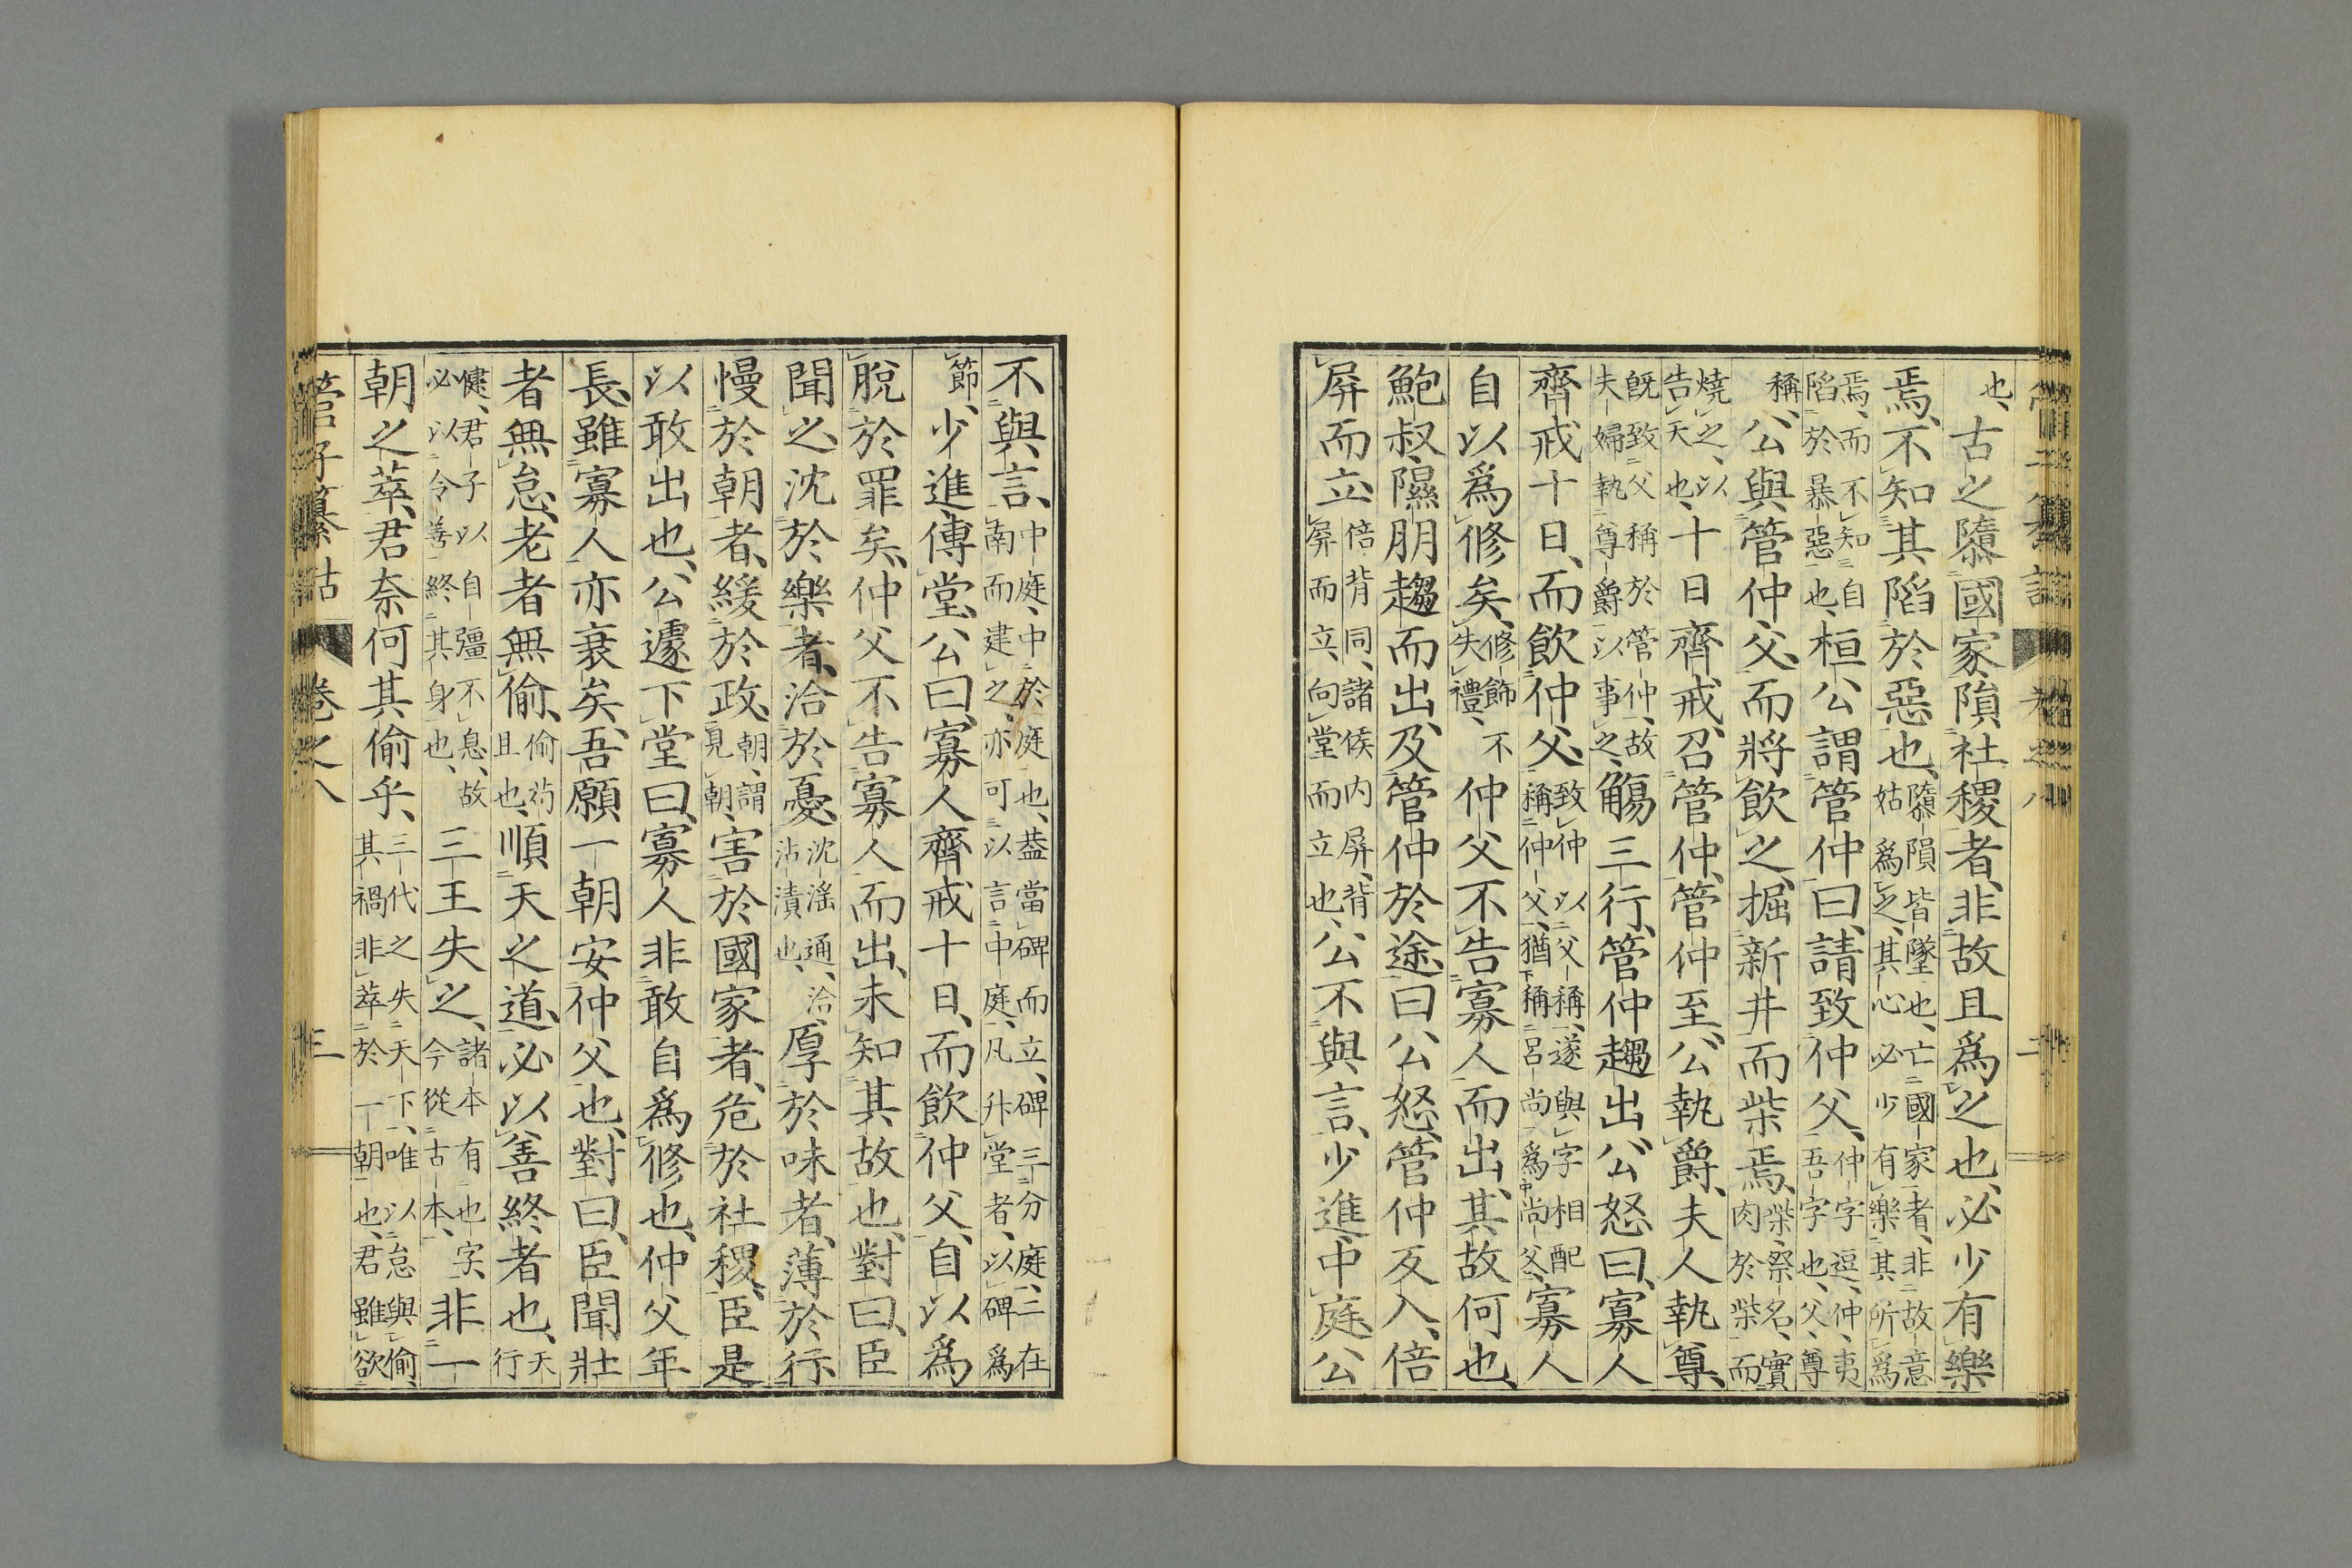 也、古之隳國家、隕社稷者、非故且爲之也、必少有樂
焉、不知其陷於惡也、隳隕皆墜也、亡國家者、非故意姑爲之、其心必少有樂其所爲
焉、而不知自陷於暴惡也、桓公謂管仲曰、請致仲父、仲字逗、仲、夷吾字也、父、尊
稱、公與管仲父、而將飲之、掘新井而柴焉、柴、祭名、實肉於柴而
燒之、以告天也、十日齊戒、召管仲、管仲至、公執爵、夫人執尊、
既致父稱於管仲、故夫婦執尊爵以事之、觴三行、管仲趨出、公怒曰、寡人
齊戒十日、而飲仲父、致仲以父稱、遂與字相配稱仲父、猶稱呂尚爲尚父、寡人
自以爲修矣、修飾不失禮、仲父不告寡人而出、其故何也、
鮑叔隰朋趨而出、及管仲於途、曰、公怒、管仲反入、倍
屏而立、倍背同、諸侯内屏、背屏而立、向堂而立也、公不與言、少進中庭、公
不與言、中庭、中於庭也、蓋當碑而立、碑三分庭、二在南而建之、亦可以言中庭、凡升堂者、以碑爲
節、少進傅堂、公曰、寡人齊戒十日、而飲仲父、自以爲
脫於罪矣、仲父不告寡人而出、未知其故也、對曰、臣
聞之、沈於樂者、洽於憂、沈滛通、洽、沾漬也、厚於味者、薄於行
慢於朝者、緩於政、朝、謂見朝、害於國家者、危於社稷、臣是
以敢出也、公遽下堂曰、寡人非敢自爲修也、仲父年
長、雖寡人亦衰矣、吾願一朝安仲父也、對曰、臣聞壯
者無怠、老者無偷、偷苟且也、順天之道、必以善終者也、天行
健、君子以自彊不息、故必以令善終其身也、三王失之、諸本有也字、今從古本、非一
朝之萃、君奈何其偷乎、三代之失天下、唯以怠與偷、其禍非萃於一朝也、君雖欲
管子纂詁 卷之八 三